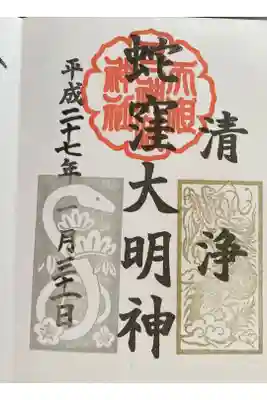 清浄
蛇窪大明神
平成二十七年一月三十一日